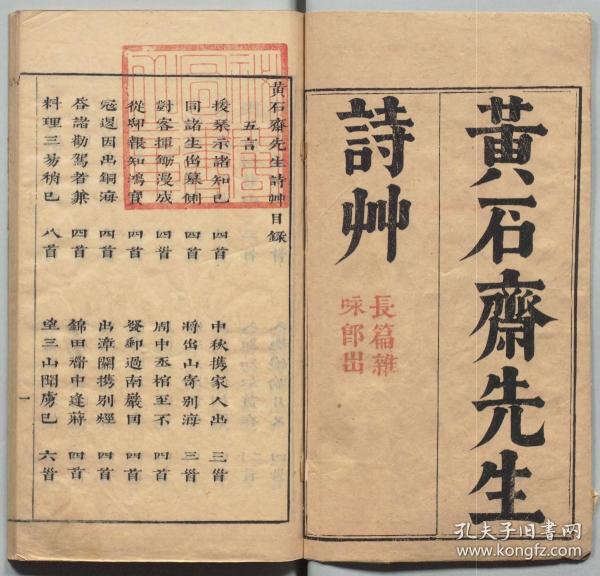 黃石齋先生
詩艸
長篇雜
咏卽出
黃石齋先生詩艸目錄
五言
援琴示諸知己 四首
中秋携家人出 三首
同諸生出墓側 四首
將出山寄別海 三首
對客揮鋤漫成 四首
周中丞棺至不 四首
從邸報知鴻寶 四首
發郵過南嚴因 四首
冦退因出銅海 四首
出漳關携別經 四首
咎諸勸駕者兼 四首
錦田齋中逢蔣 四首
料理三易稍巳 八首
望三山聞虜巳 六首
一
孔夫子旧书网
www.kongfz.com